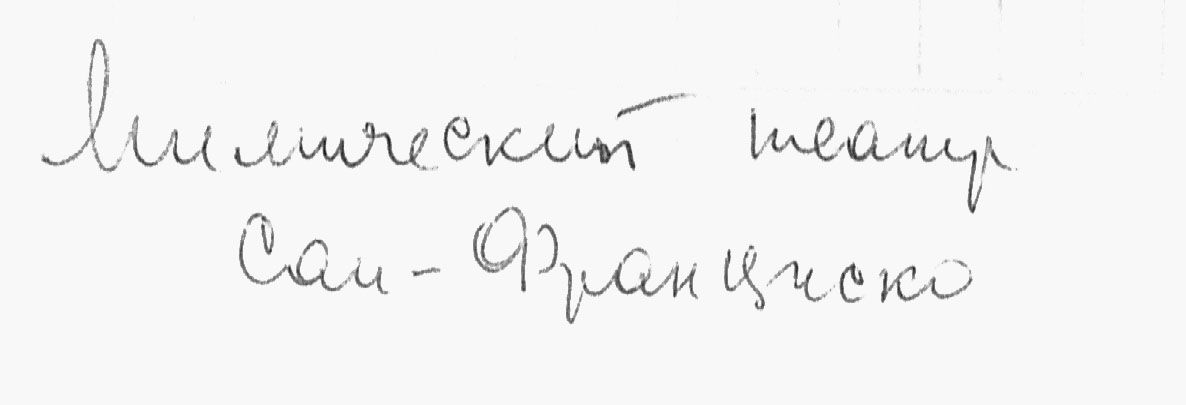 Мимический театр
Сан-Франциско